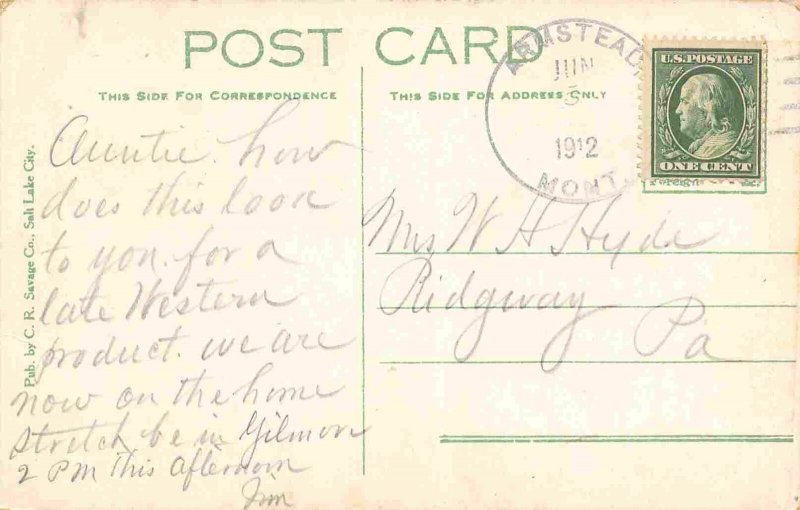 POST CARD
THIS SIDE FOR CORRESPONDENCE
THIS SIDE FOR ADDRESS ONLY
ARMSTEAD
JUN
5
1912
MONT.
U.S. POSTAGE
ONE CENT
Foreign
Pub. by C. R. Savage Co., Salt Lake City.
Auntie. how
does this look
to you. for a
late Western
product. we are
now on the home
stretch be in Gilmore
2 PM This Afternoon
Jim
Mrs W H Hyde
Ridgway
Pa